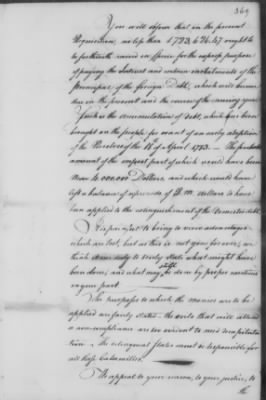 369
You will observe that in the present
Requisition, no less than 1.723,626.47 ought to
be forthwith raised in specie for the express purpose
of paying the Interest and certain instalments of the
principal of the foreign Debt, which will become
due in the present and the course of the ensuing year
Such is the accumulation of debt, which has been
brought on the people for want of an early adoption
of the Revenue of the 18 of April 1783. — The probable
amount of the impost part of which would have been
Near 4.000.000 Dollars, and which would have
left a balance of upwards of Dollars to have
been applied to the extinguishment of the Domestic debt.
It is painful to bring to view advantages
which are lost, but as this is not gone forever, we
think it our duty to state what might have
been done; and what may still be done by proper exertions
on your part —
The purposes to which the monies are to be
applied are fairly stated — the evils that will attend
a non-compliance are too evident to need
The delinquent States must be responsible for
all those Calamities.
We appeal to your reason, to your justice, to
the